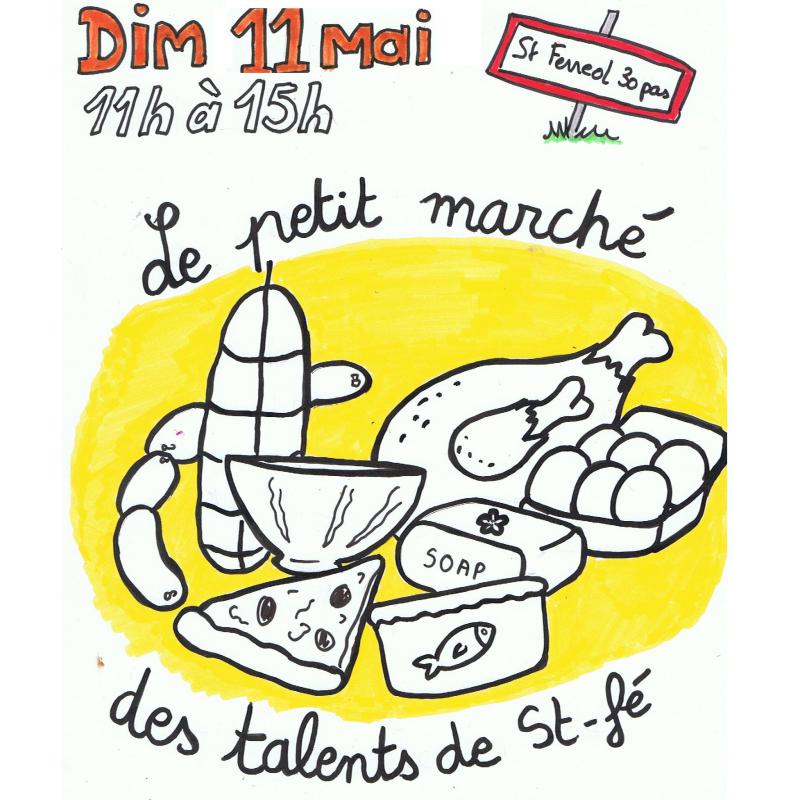 Dim 11 Mai
11h à 15h
St Ferreol 30 pas
Le petit marché
SOAP
des talents de St-fé